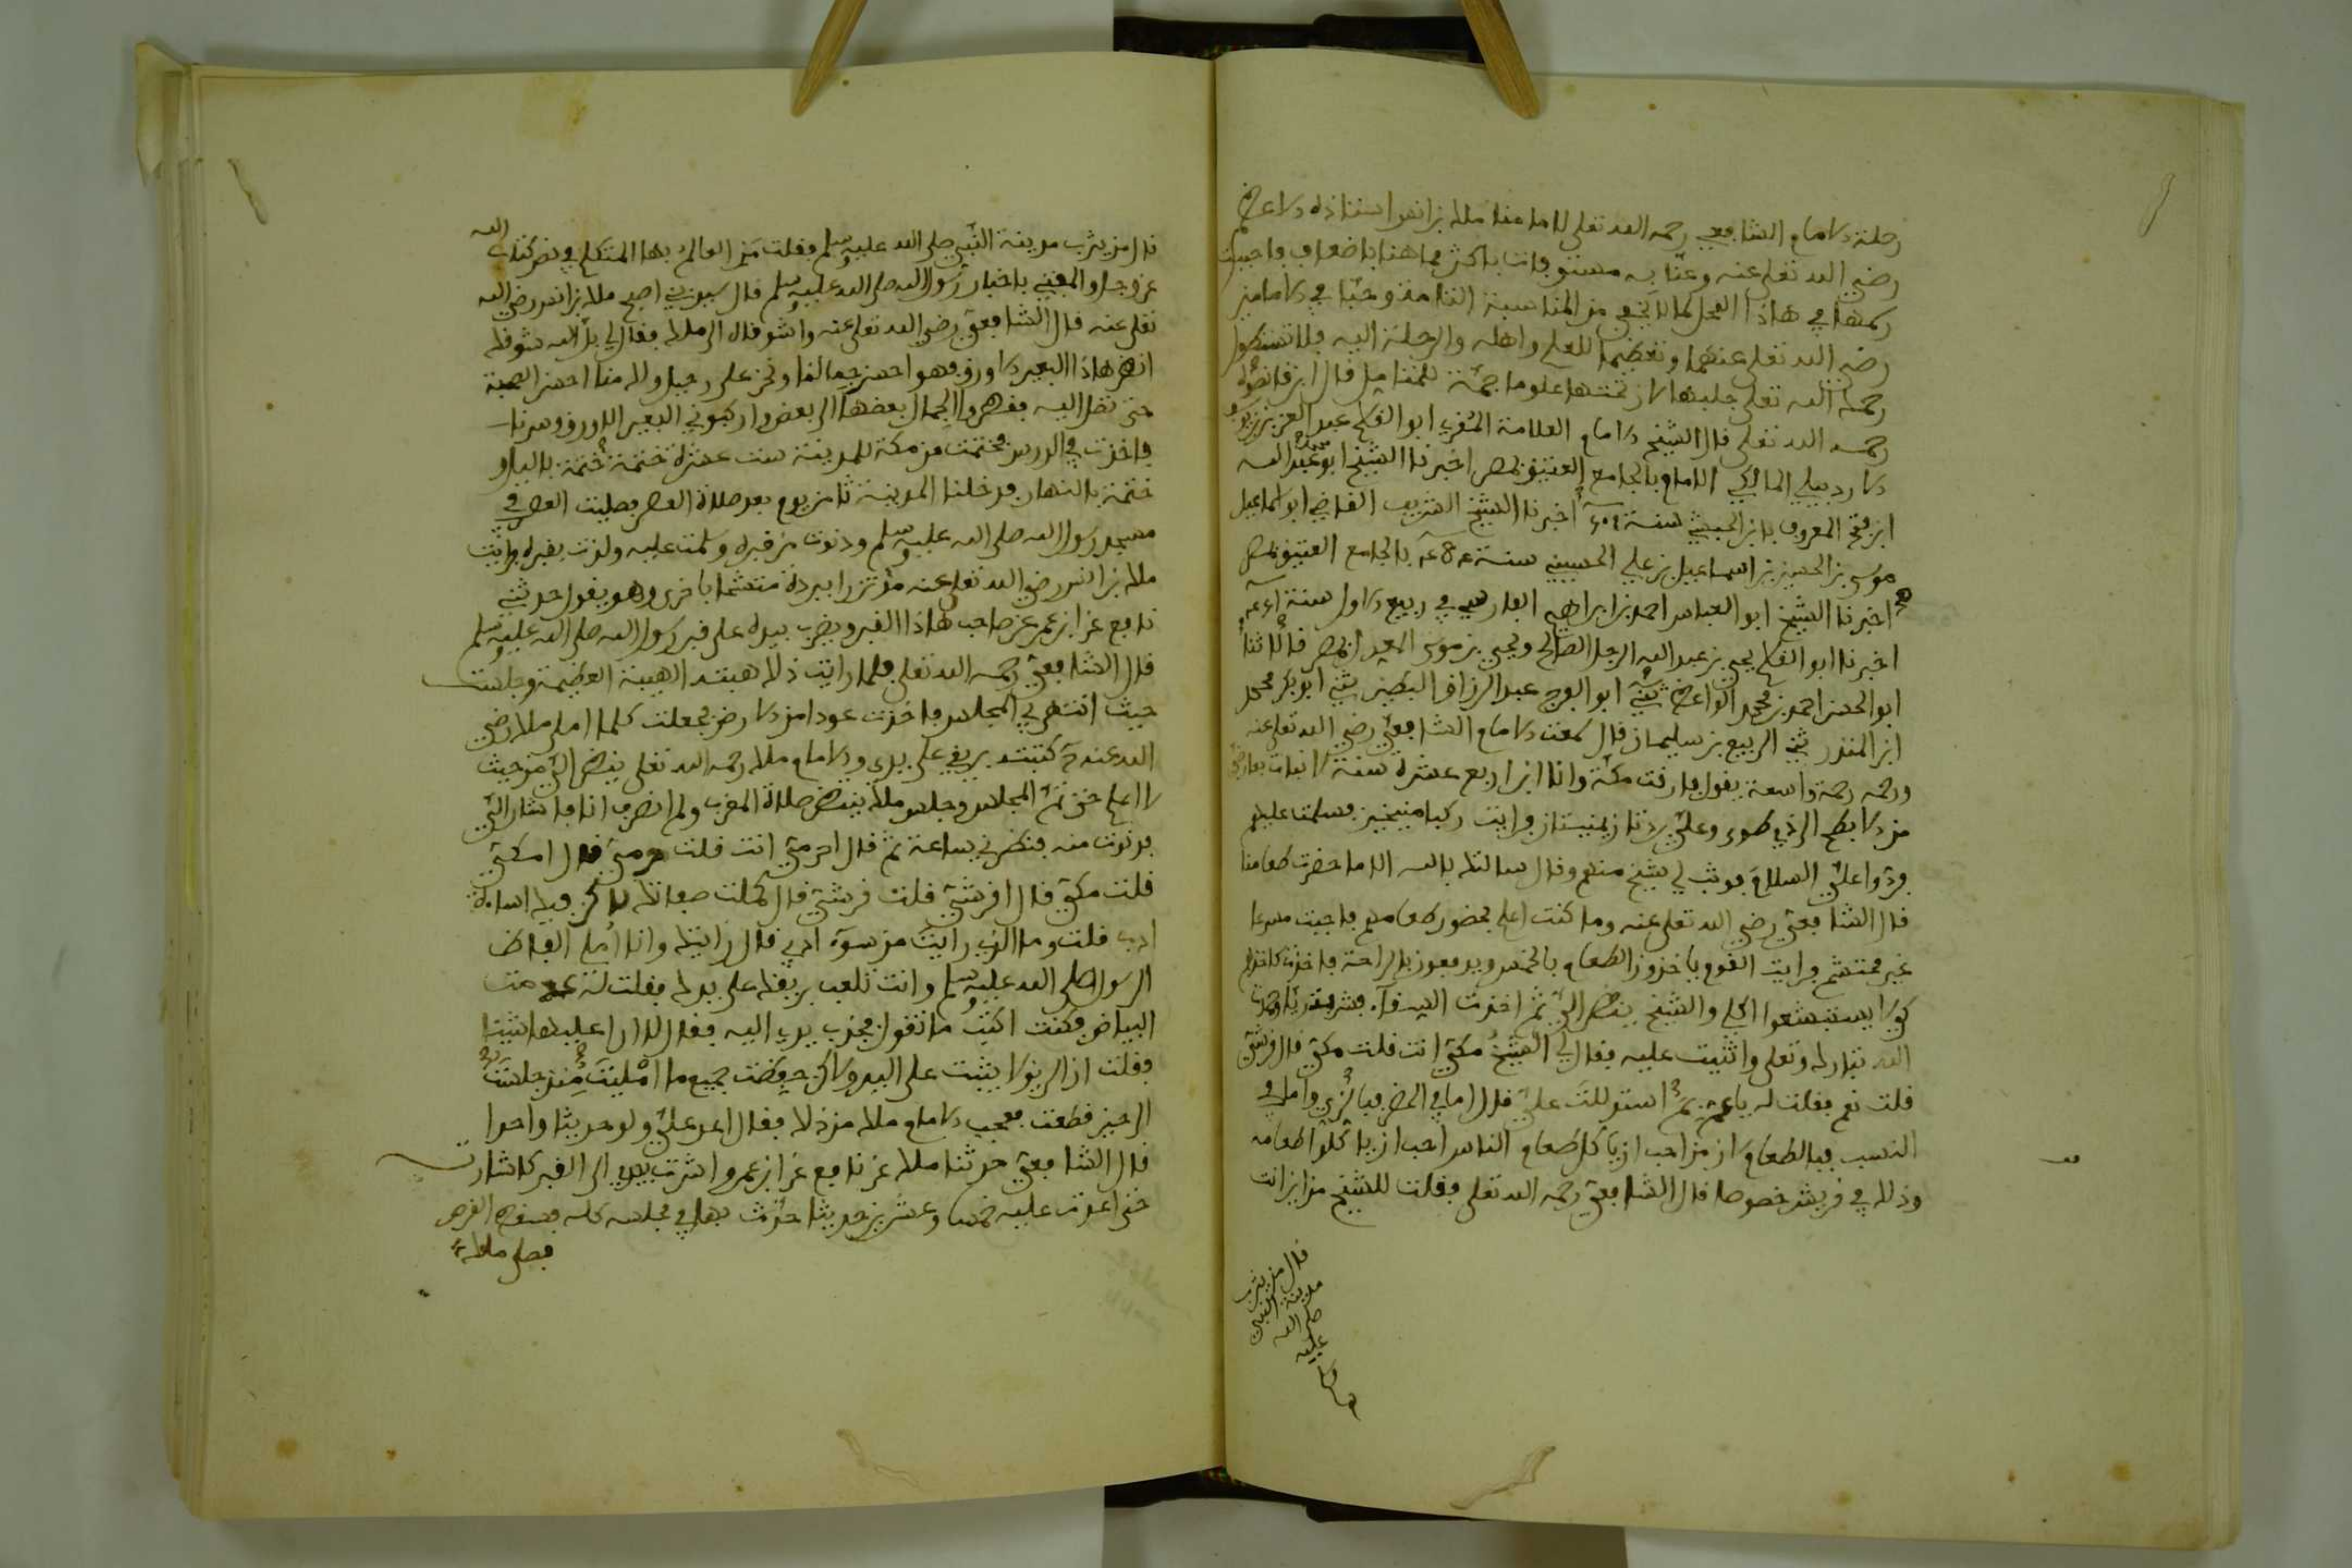 رحلة الامام الشافعي رحمه الله تعلى لامامنا ملك بن انس استاذه الاعظم
رضي الله تعلى عنه وعنا به مستوفات باكثر مما هنا باضعاف فاحببت
رسمها في هاذا المحل كما لا يخفى من المناسبة التامة وحبا في الامامين
رضي الله تعلى عنهما وتعظيما للعلم واهله والرحلة اليه فلا تستطول
رحمك الله تعلى جلبها لان تحتها علوما جمة للمتامل قال ابن فانصوه
رحمه الله تعلى قال الشيخ الامام العلامة المقري ابو الفتح عبد العزيز بن يوسف
الاردبيلي المالكي الامام بالجامع العتيق بمصر اخبرنا الشيخ ابو عبد الله محمد
ابن فتح المعروف بابن الحبيشي سنة اخبرنا الشيخ الشريف القاضي ابو اسماعيل
موسى بن الحسين بن اسماعيل بن علي الحسيني سنة بالجامع العتيق بمصر
اخبرنا الشيخ ابو العباس احمد بن ابراهيم الفارسي في ربيع الاول سنة
اخبرنا ابو الفتح يحيى بن عبد الله الرجل الصالح ويحيى بن موسى المعدل بمصر قالا ثنا
ابو الحسن احمد بن محمد الواعظ ثني ابو الفرج عبد الرزاق البطين ثني ابو بكر محمد
ابن المنذر ثني الربيع بن سليمان قال سمعت الامام الشافعي رضي الله تعلى عنه
ورحمه رحمة واسعة يقول فارقت مكة وانا ابن اربع عشرة سنة لا نبات بعارضي
من الابطح الى ذي طوى وعلي بردتان يمنيتان فرايت ركبا منيخين فسلمت عليهم
فردوا علي السلام فوثب لي شيخ منهم وقال سالتك بالله الا ما حضرت طعامنا
قال الشافعي رضي الله تعلى عنه وما كنت اعلم بحضور طعامهم فاجبت مسرعا
غير محتشم فرايت القوم ياخذون الطعام بالخمس ويدفعون بالراحة فاخذت كاخذهم
كي لا يستبشعوا اكلي والشيخ ينظر الي ثم اخذت السقاء فشربت ريا وحمدت
الله تبارك وتعلى واثنيت عليه فقال لي الشيخ مكي انت قلت مكي قال قرشي
قلت نعم فقلت له يا عم بم استدللت علي قال اما في الحضر فبالزي واما في
النسب فبالطعام لان من احب ان ياكل طعام الناس احب ان ياكلوا طعامه
وذلك في قريش خصوصا قال الشافعي رحمه الله تعلى فقلت للشيخ من اين انت
قال من يثرب
مدينة النبي
صلى الله
عليه
وسلم
قال من يثرب مدينة النبي صلى الله عليه وسلم فقلت من العالم بها المتكلم في نص كتاب الله
عز وجل والمفتي باخبار رسول الله صلى الله عليه وسلم قال سيد بني اصبح ملك بن انس رضي الله
تعلى عنه قال الشافعي رضي الله تعلى عنه واشوقاه الى ملك فقال لي بل الله شوقك
انظر هاذا البعير الاورق فهو احسن جمالنا ونحن على رحيل ولك منا احسن الصحبة
حتى تصل اليه فقطروا الجمال بعضها الى بعض واركبوني البعير الاورق وسرنا
واخذت في الدرس فختمت من مكة للمدينة ست عشرة ختمة ختمة بالليل و
ختمة بالنهار فدخلنا المدينة ثامن يوم بعد صلاة العصر فصليت العصر في
مسجد رسول الله صلى الله عليه وسلم ودنوت من قبره وسلمت عليه ولذت بقبره فرايت
ملك بن انس رضي الله تعلى عنه مؤتزرا ببردة متشحا باخرى وهو يقول حدثني
نافع عن ابن عمر عن صاحب هاذا القبر ويضرب بيده على قبر رسول الله صلى الله عليه وسلم
قال الشافعي رحمه الله تعلى فلما رايت ذلك هبته الهيبة العظيمة وجلست
حيث انتهى بي المجلس فاخذت عودا من الارض فجعلت كلما املى ملك رضي
الله عنه كتبته بريقي على يدي والامام ملك رحمه الله تعلى ينظر الي من حيث
لا اعلم حتى تم المجلس وجلس ملك ينتظر صلاة المغرب ولم انصرف انا فاشار الي
فدنوت منه فنظر لي ساعة ثم قال احرمي انت قلت حرمي قال امكي
قلت مكي قال اقرشي قلت قرشي قال كملت صفاتك لاكن فيك اساءة
ادب قلت وما الذي رايت من سوء ادبي قال رايتك وانا املي الفاظ
الرسول صلى الله عليه وسلم وانت تلعب بريقك على يدك فقلت له عدمت
البياض فكنت اكتب ما تقول فجذب يدي اليه فقال لا ارى عليها شيئا
فقلت ان الريق لا يثبت على اليد ولاكن حفظت جميع ما امليت منذ جلست
الى حين قطعت فعجب الامام ملك من ذلك فقال اعد علي ولو حديثا واحدا
قال الشافعي حدثنا ملك عن نافع عن ابن عمر واشرت بيدي الى القبر كاشارته
حتى اعدت عليه خمسا وعشرين حديثا حدث بها في مجلسه كله فسقط القرص
فصلى ملك